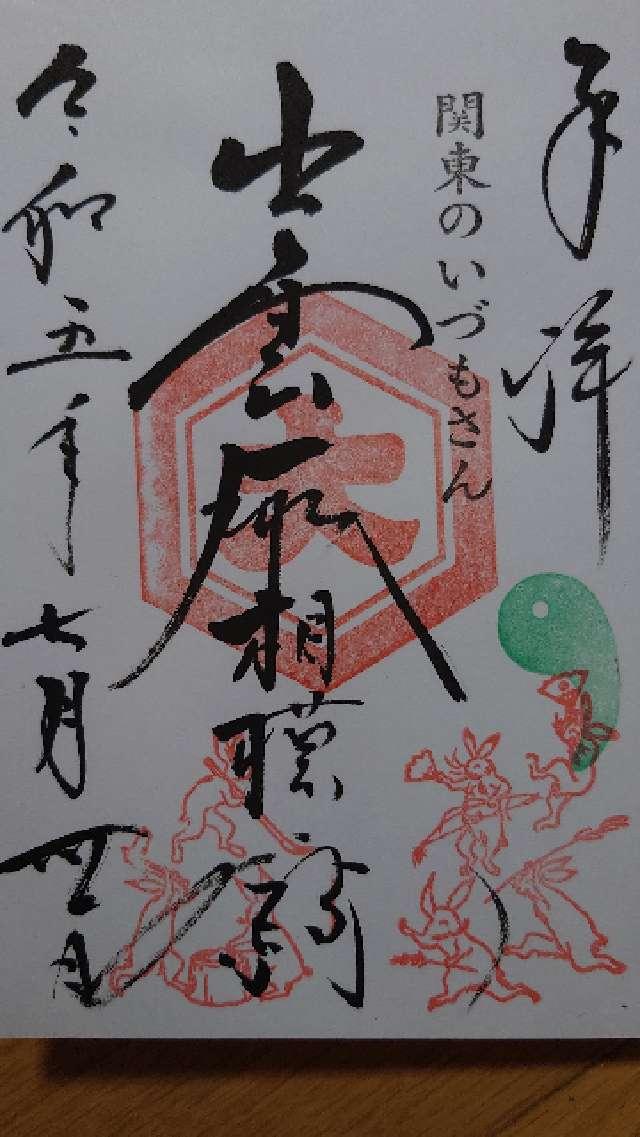 奉拝
関東のいづもさん
出雲大社相模分祠
大
令和五年七月四日